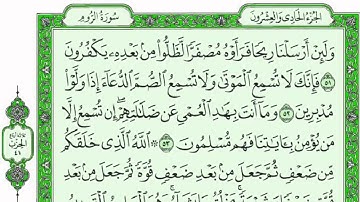 الجزء الحادي والعشرون
سورة الروم
وَلَئِنْ أَرْسَلْنَا رِيحًا فَرَأَوْهُ مُصْفَرًّا لَّظَلُّوا مِنْ بَعْدِهِ يَكْفُرُونَ
٥١ فَإِنَّكَ لَا تُسْمِعُ الْمَوْتَىٰ وَلَا تُسْمِعُ الصُّمَّ الدُّعَاءَ إِذَا وَلَّوْا
مُدْبِرِينَ ٥٢ وَمَا أَنتَ بِهَادِ الْعُمْيِ عَن ضَلَالَتِهِمْ إِن تُسْمِعُ إِلَّا
مَن يُؤْمِنُ بِآيَاتِنَا فَهُم مُّسْلِمُونَ ٥٣ ۞ اللَّهُ الَّذِي خَلَقَكُم
مِّن ضَعْفٍ ثُمَّ جَعَلَ مِن بَعْدِ ضَعْفٍ قُوَّةً ثُمَّ جَعَلَ مِن بَعْدِ
الحزب
٤١